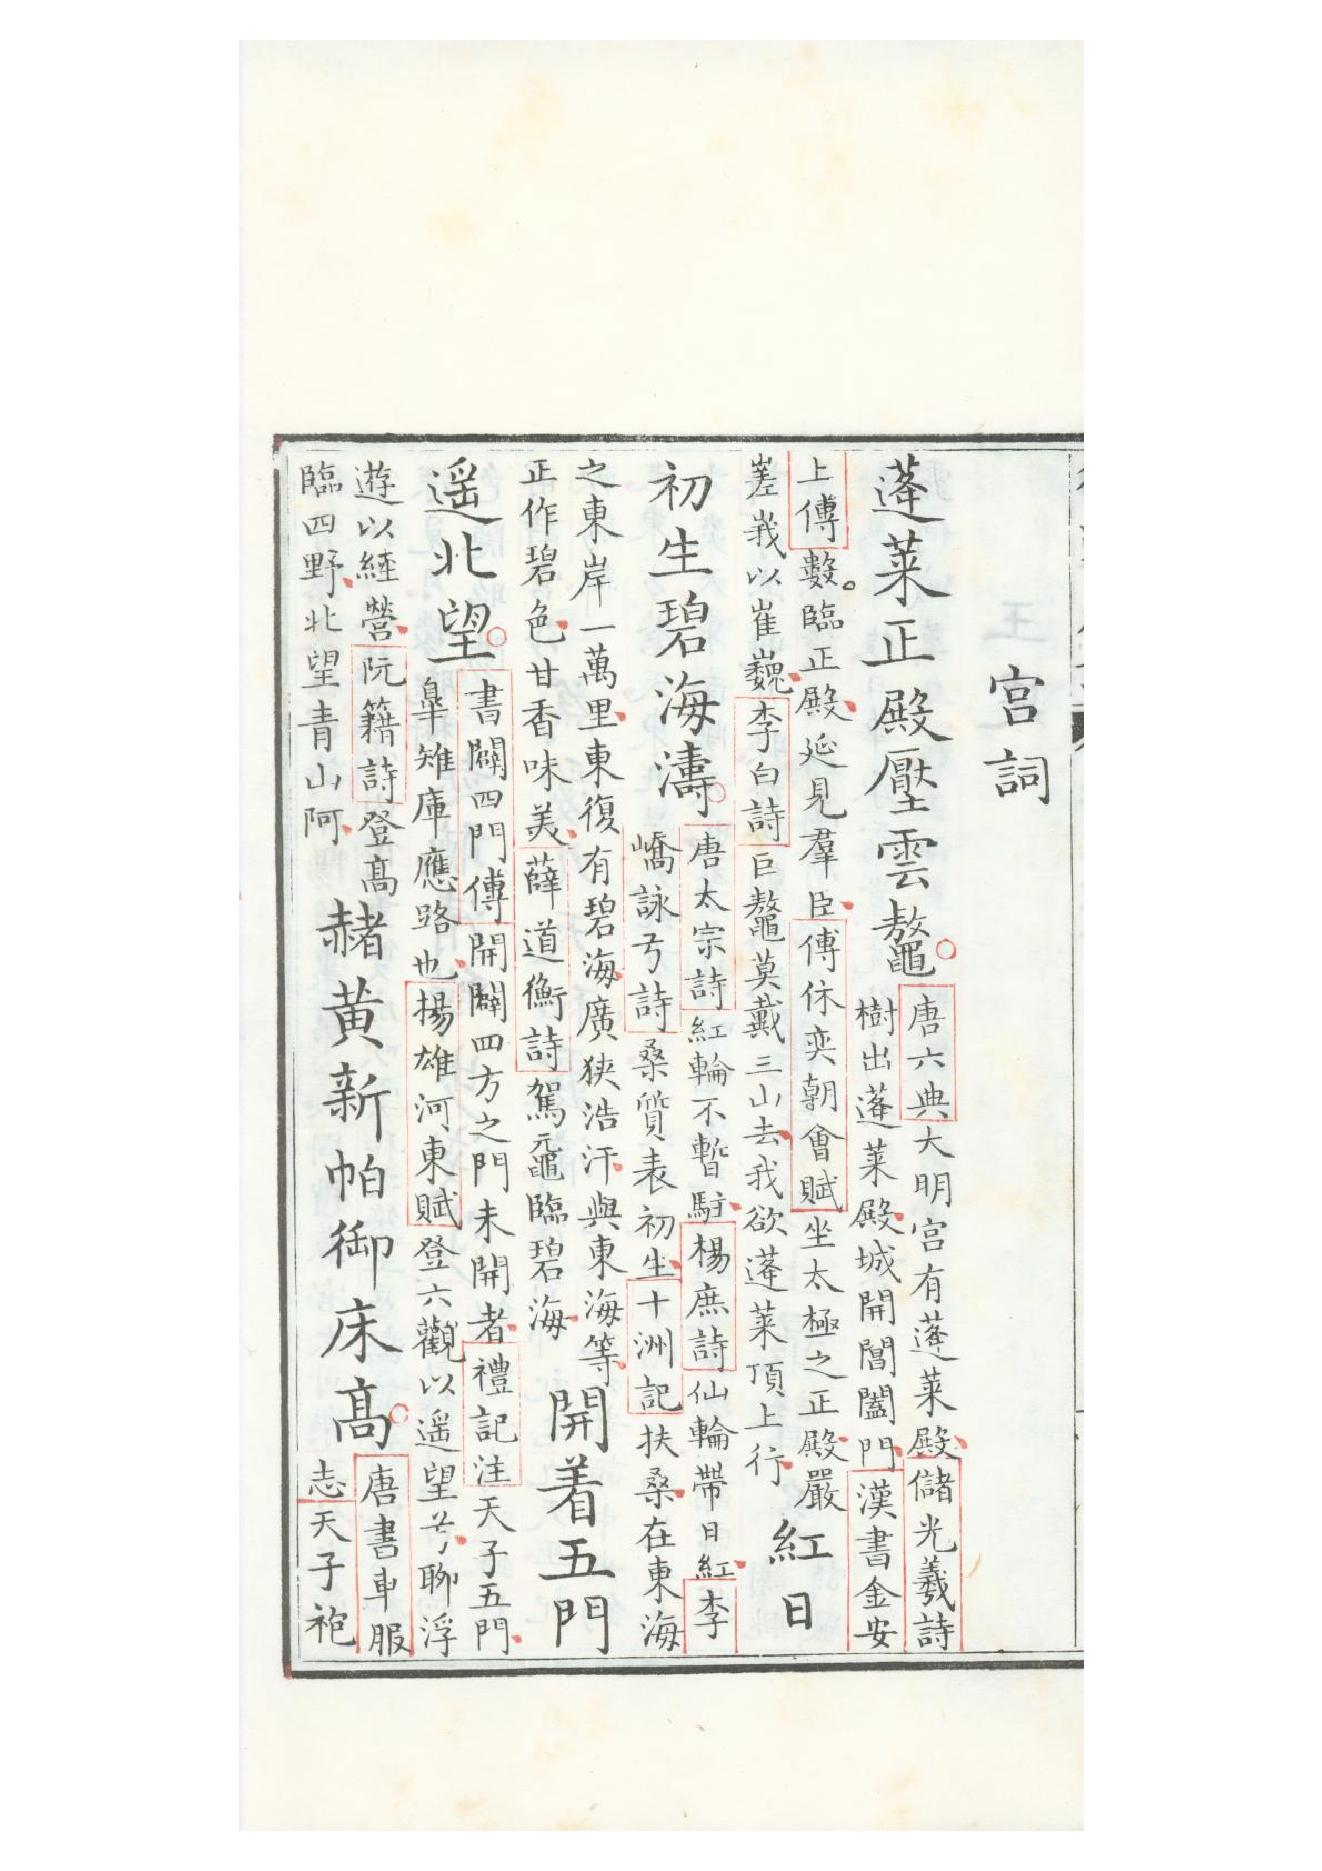 宫詞
蓬莱正殿壓雲鼇
唐六典大明宫有蓬莱殿儲光羲詩
樹出蓬莱殿城開閶闔門漢書金安
上傅數臨正殿延見羣臣傅休奕朝會賦坐太極之正殿嚴
嵳峩以崔巍李白詩巨鼇莫戴三山去我欲蓬莱頂上行
紅日
初生碧海濤
唐太宗詩紅輪不暫駐楊庶詩仙輪帶日紅李
嶠詠兮詩桑質表初生十洲記扶桑在東海
之東岸一萬里東復有碧海廣狹浩汗與東海等
正作碧色甘香味美薛道衡詩駕黿臨碧海
開着五門
遥北望
書闢四門傅開闢四方之門未開者禮記注天子五門
臯雉庫應路也揚雄河東賦登六觀以遥望兮聊浮
遊以經營阮籍詩登高
臨四野北望青山阿
赭黄新帕御床高
唐書車服
志天子袍